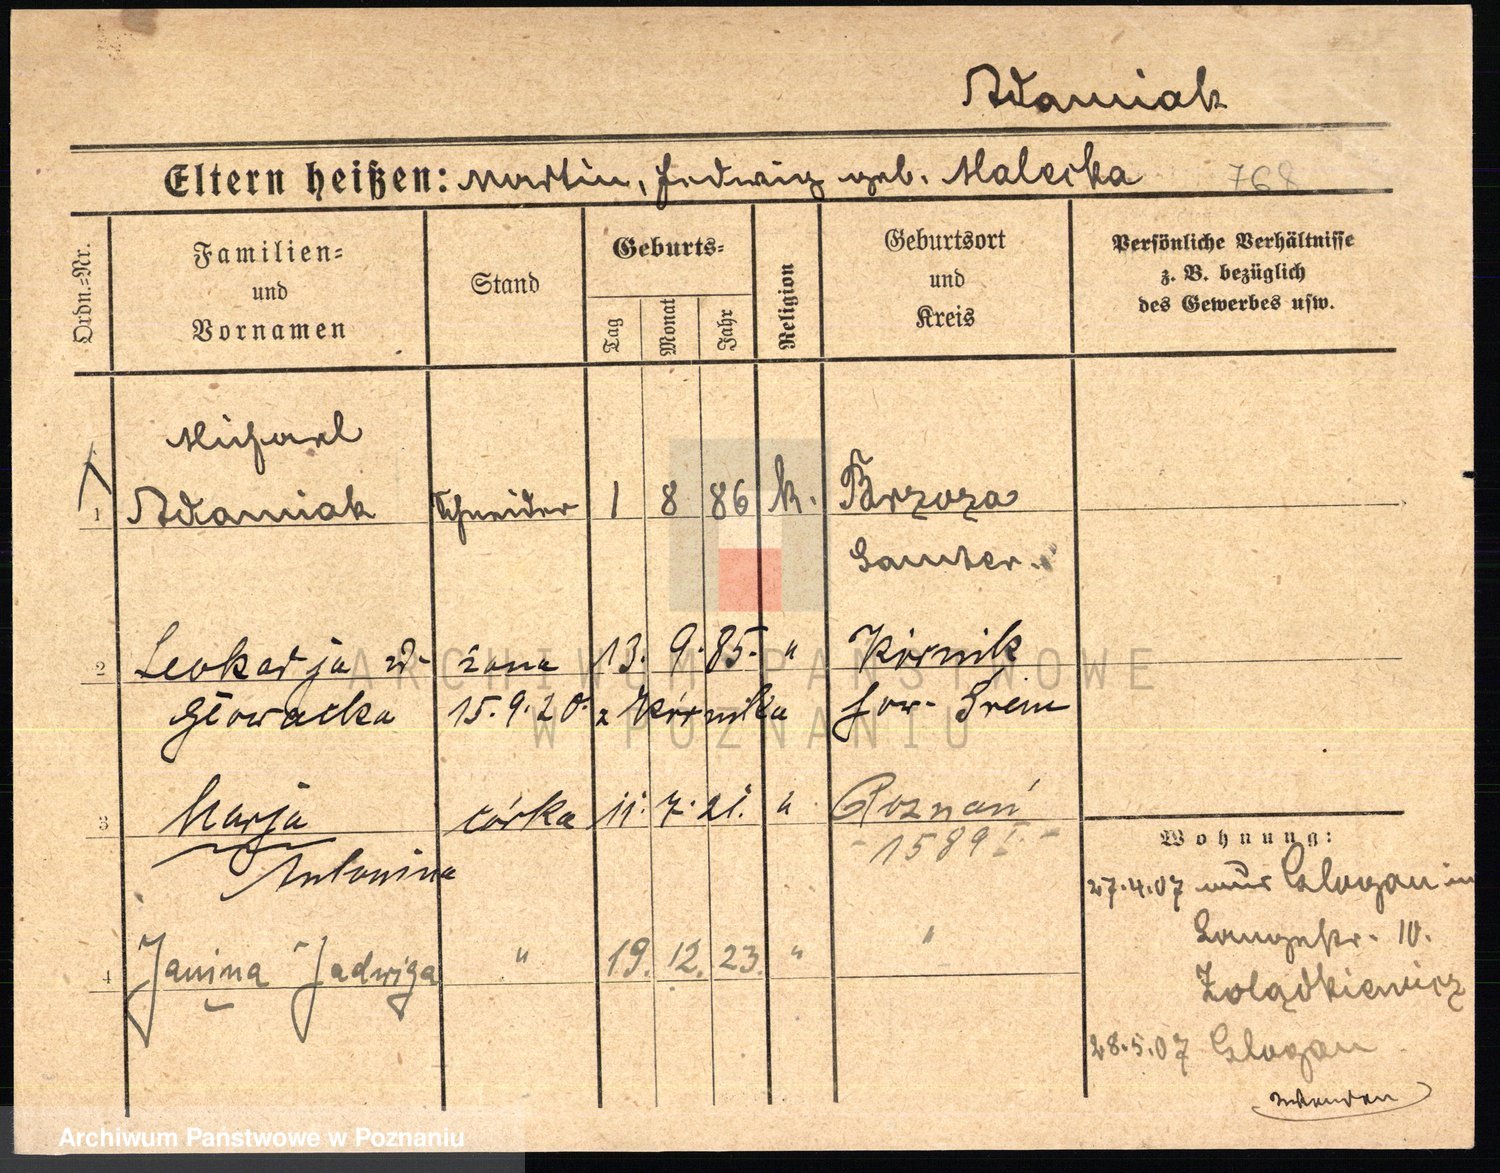 Adamiak
Eltern heißen: Martin, Hedwig geb. Malecka
768
Ordn.-Nr.
Familien-
und
Vornamen
Stand
Geburts-
Tag
Monat
Jahr
Religion
Geburtsort
und
Kreis
Persönliche Verhältnisse
z. B. bezüglich
des Gewerbes usw.
Michael
1 Adamiak Schneider 1 8 86 k. Brzoza
Samter.
2 Leokadja z d. żona 13. 9. 85. " Kórnik
Głowacka 15.9.20. z Kórnika pow. Śrem
3 Marja córka 11. 7. 21. " Poznań
- 1589 I -
Antonina
4 Janina Jadwiga " 19. 12. 23. " "
Wohnung:
27.4.07 aus Glogau in
Langestr. 10.
Żołądkiewicz
28.5.07 Glogau
wenden
ARCHIWUM PAŃSTWOWE
W POZNANIU
Archiwum Państwowe w Poznaniu